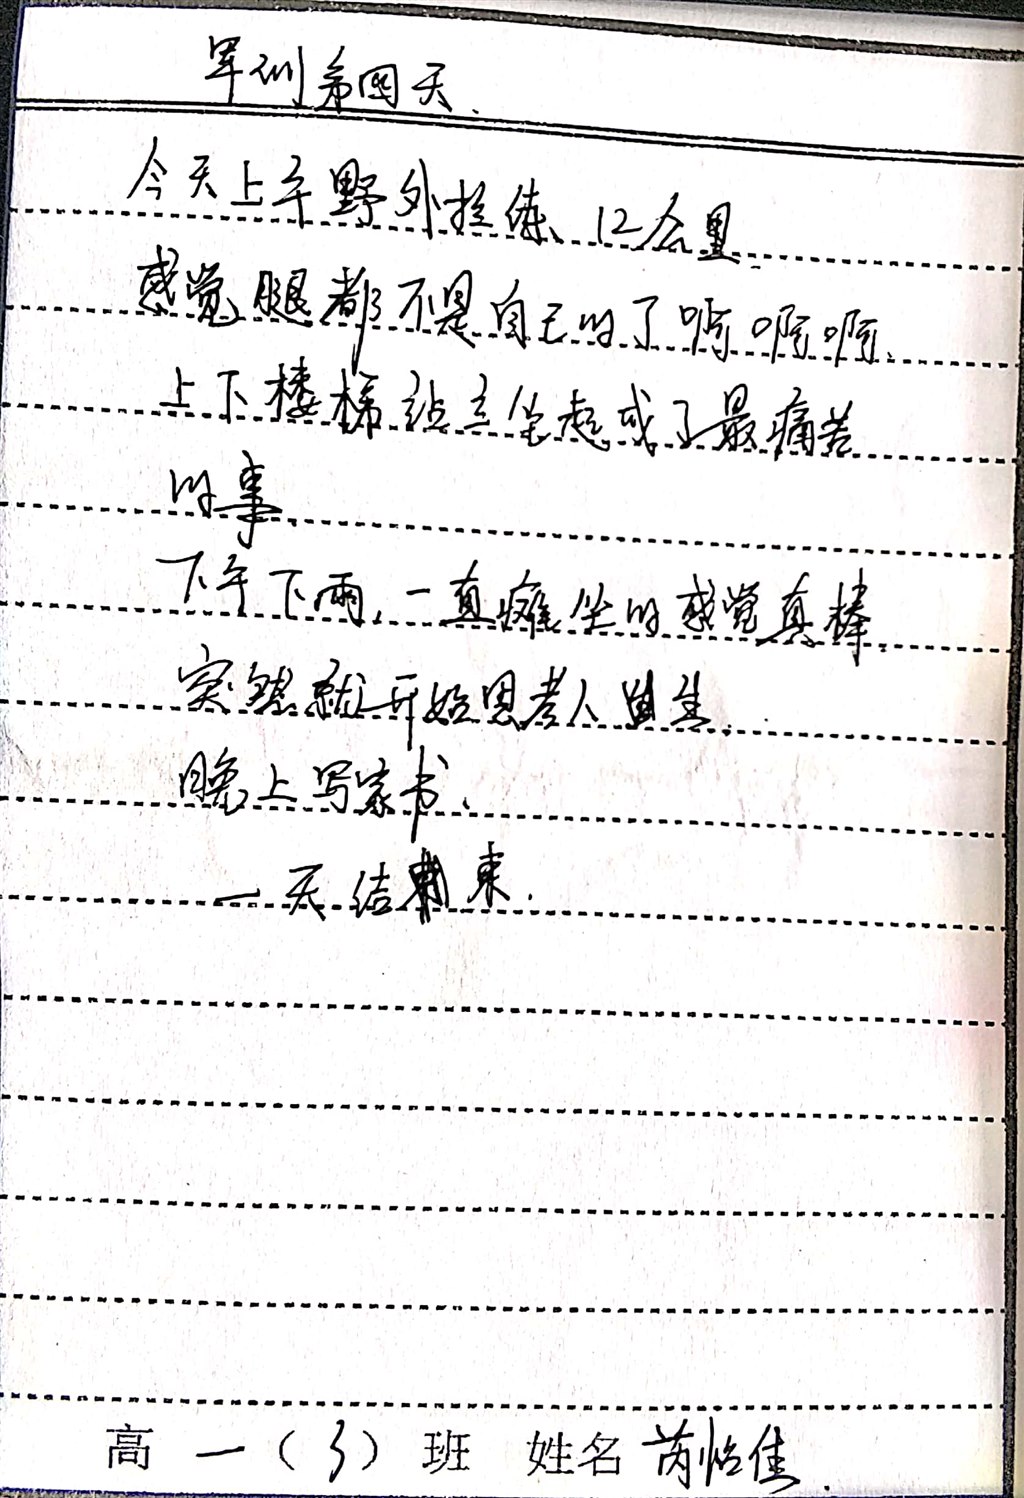 军训第四天.
今天上午野外拉练、12公里.
感觉腿都不是自己的了啊啊啊.
上下楼梯站立坐起成了最痛苦
的事.
下午下雨.一直瘫坐的感觉真棒.
突然就开始思考人生.
晚上写家书.
一天结束.
高一(3)班 姓名 芮怡佳.